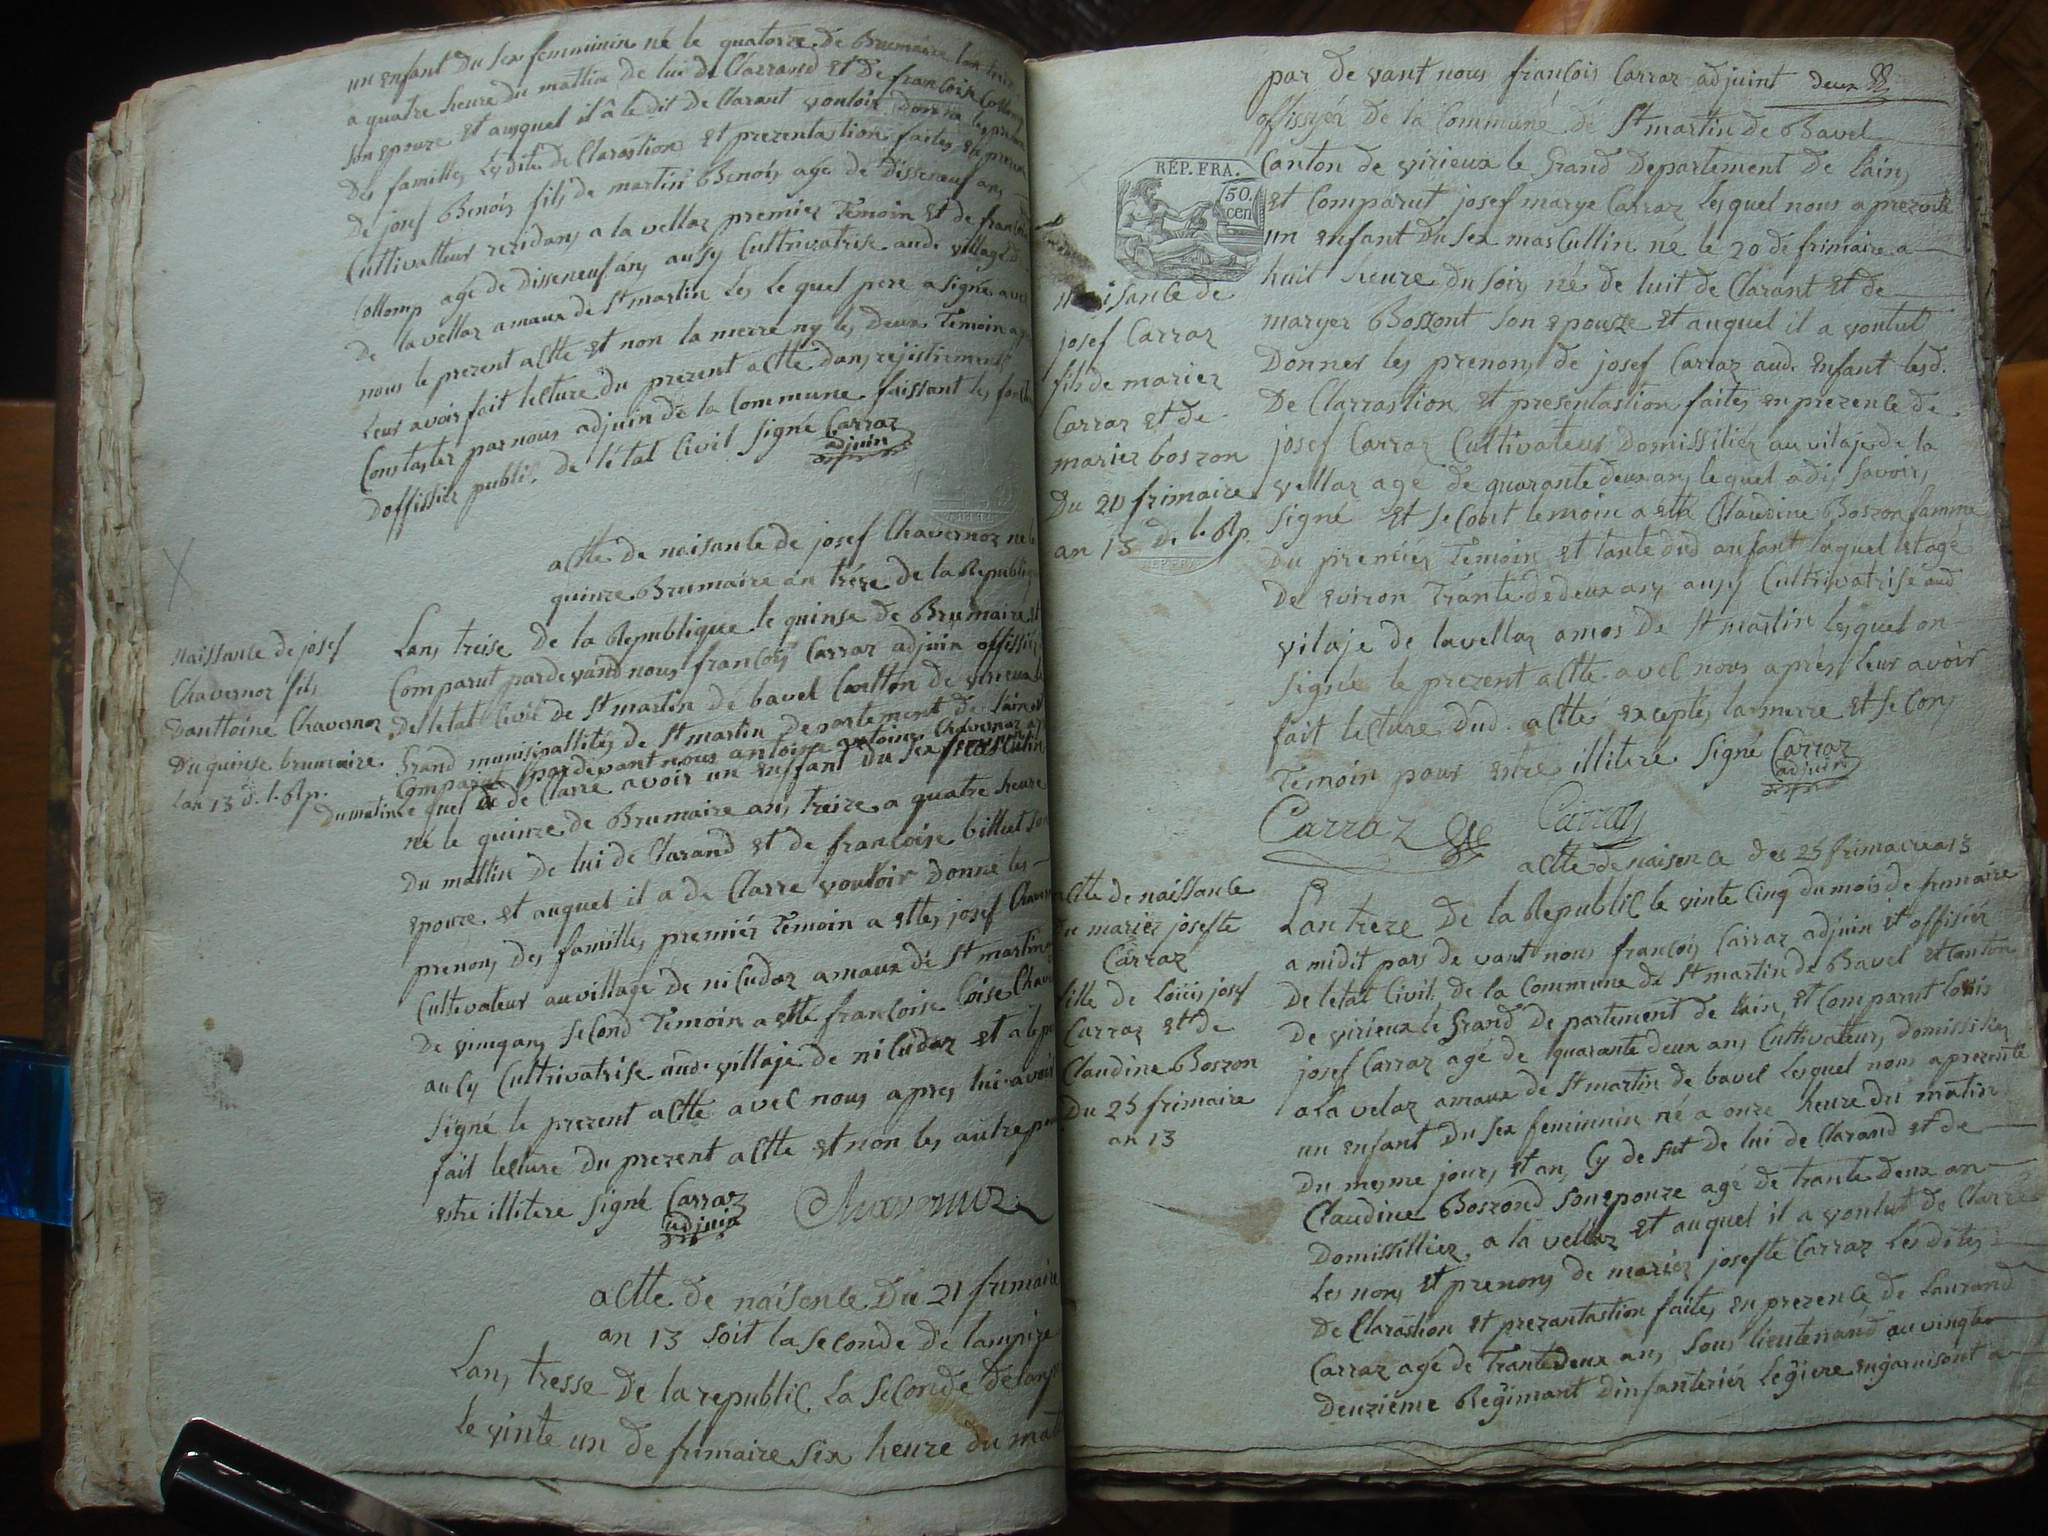 un enfant du sex femminin né le quatorze de Brumaire lan treize
a quatre heure du mattin de lui de Clarrand et de francoise Collomp
son epouze et auquel il â le dit de Clarant vouloir donné les prenons
des familles les dite de Clarastion et prezentastion faites en prezen
de josef Benois fils de martin Benois age de disseneuf ans
Cultivatteur rezidans a la vellaz premier temoin et de francoise
Collomp age de disseneuf ans ausy Cultrivatrise aud. village d
de lavellaz amaux de St martin les le quel pere a signé avec
nous le prezent actte et non la merre ny les deux temoin apres
leur avoir fait lecture du prezent actte dans rejistrement
Constaster par nous adjuin de la Commune faissant les fonct
doffissier public de létat Civil signé Carraz
adjuin
actte de naisance de josef Chavernoz né le
quinze Brumaire an tréze de la Republique
naissance de josef
Chavernoz fils
Danttoine Chavernoz
Du quinse brumaire
lan 13 d. l. Rp.
Lans treise de la Republique le quinse de Brumaire et
Comparut pardevand nous francois Carraz adjuin offissier
De letat Civil de St martin de bavel Cantton de virieux le
Grand munisipallités de St martin Departement de lain et
Comparut pardevant nous antoine Chavernoz
du matin Le quel a de Clarre avoir un enffant du sex masculin
né le quinze de Brumaire ans treize a quatre heure
du mattin de lui de Clarand et de francoise billiet son
epouze et auquel il a de Clarre vouloir donné les
prenons des familles premiér temoin a ettes josef Chaver
Cultivateur au village de ni Cudaz amaux de St martin
de vingans second temoin a ette francoise Chaver
aucy Cultrivatrise aud. villaje de ni Cudaz et a le pere
signé le prezent actte avec nous apres lui avoir
fait lecture du prezent actte et non les autre pour
estre illitere signé Carraz
adjuin
Chavernoz
actte de naisence du 21 frimaire
an 13 soit la seconde de lampire
Lans tresse de la republic la seconde de lamp
le vinte un de frimaire six heure du mat
par de vant nous francois Carraz adjuint deux
offissyér de la Commune de St martin de Bavel
RÉP. FRA.
50.
cen
Canton de virieux le Grand Departement de lain
et Comparut josef marye Carraz lesquel nous a prezenté
un enfant du sex masCullin né le 20 de frimaire a
huit heure du soir né de luit de Clarant et de
maryer Bossont son epousze et auquel il a voulut
Donner les prenons de josef Carraz aud. Enfant lesd.
De Clarrastion et presentastion faites en prezence de
josef Carraz Cultivateur Domissiliér au vilaje de la
vellaz agé de quarante deux ans lequel a dis savoir
signé et second temoin a etté Claudine Boszon famme
Du premiér temoin et tante dud anfant laquel et agé
De eviron trante de deux ans ausy Cultrivatrise aud
vilaje de lavellaz amos de St martin lesquel on
signé le prezent actte avec nous aprés leur avoir
fait lecture dud. actté exceptés la merre et secons
temoin pour estre illiteré signé Carraz
adjuin
Naisance de
josef Carraz
fils de mariez
Carraz et de
mariez boszon
Du 20 frimaire
an 13 de l. Rp.
Carraz Carraz
actte de naisence des 25 frimaire an 13
actte de naissance
du mariez josefte
Carraz
fille de Louis josef
Carraz ett de
Claudine Boszon
Du 25 frimaire
an 13
Lan treze de la Republic le vinte Cinq du mois de frimaire
a midit pars de vant nous francois Carraz adjuin et offisiér
De letat Civil de la Commune de St martin de Bavel et Canton
De virieux le Grand De partement de lain et Comparut louis
josef Carraz agé de quarante deux ans Cultivateur domissilier
a la velaz amaux de St martin de bavel lesquel nous a prezenté
un enfant du sex feminnin né a onze heure du matin
Du mesme jours et an Cy de sut de lui de Clarand et de
Claudine Boszond son epouze agé de trante deux an
Domissilliez a la vellaz et auquel il a voulut de Clarré
Les nons et prenons de mariez josefte Carraz Les dites
De Clarastion et prezantastion faites en prezence de Laurand
Carraz agé de trante deux ans sous lieutenand au vingte
Deuziéme Regimant dinfanteriér Legiere en garnisont a